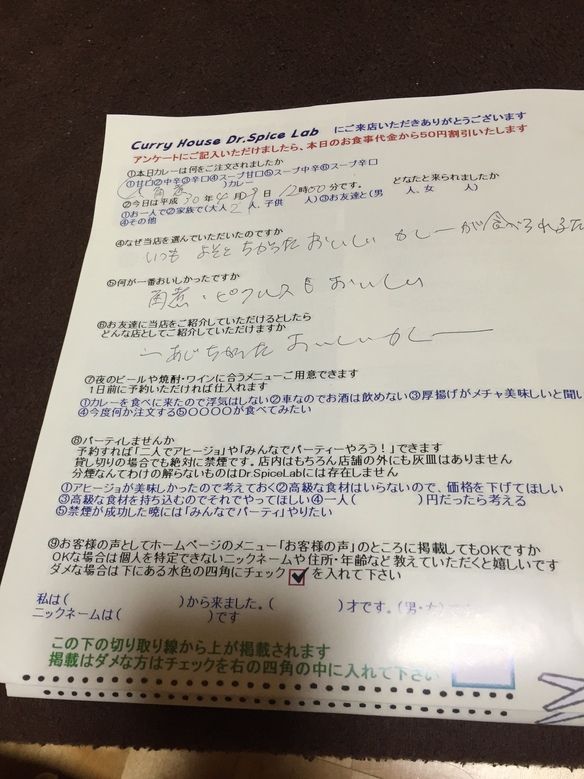 Curry House Dr.Spice Lab にご来店いただきありがとうございます
アンケートにご記入いただけましたら、本日のお食事代金から50円割引いたします
①本日カレーは何をご注文されましたか
①甘口②中辛③辛口④スープ甘口⑤スープ中辛⑥スープ辛口
(角煮 )カレー
②今日は平成 30年 4月 29日 12時00分です。 どなたと来られましたか
①お一人で②家族で(大人 2人、子供 人)③お友達と(男 人、女 人)
④その他
④なぜ当店を選んでいただいたのですか
いつも よそと ちがった おいしい カレーが食べられるた
⑤何が一番おいしかったですか
角煮・ピクルスもおいしい
⑥お友達に当店をご紹介していただけるとしたら
どんな店としてご紹介していただけますか
一あじちがった おいしいカレー
⑦夜のビールや焼酎・ワインに合うメニューご用意できます
1日前に予約いただければ仕入れます
①カレーを食べに来たので浮気はしない②車なのでお酒は飲めない③厚揚げがメチャ美味しいと聞い
④今度何か注文する⑤〇〇〇〇が食べてみたい
⑧パーティしませんか
予約すれば「二人でアヒージョ」や「みんなでパーティーやろう!」できます
貸し切りの場合でも絶対に禁煙です。店内はもちろん店舗の外にも灰皿はありません
分煙なんてわけの解らないものはDr.SpiceLabには存在しません
①アヒージョが美味しかったので考えておく②高級な食材はいらないので、価格を下げてほしい
③高級な食材を持ち込むのでそれでやってほしい④一人( )円だったら考える
⑤禁煙が成功した暁には「みんなでパーティ」やりたい
⑨お客様の声としてホームページのメニュー「お客様の声」のところに掲載してもOKですか
OKな場合は個人を特定できないニックネームや住所・年齢など教えていただくと嬉しいです
ダメな場合は下にある水色の四角にチェック を入れて下さい
私は( )から来ました。( )才です。(男・女)
ニックネームは( )です
この下の切り取り線から上が掲載されます
掲載はダメな方はチェックを右の四角の中に入れて下さい